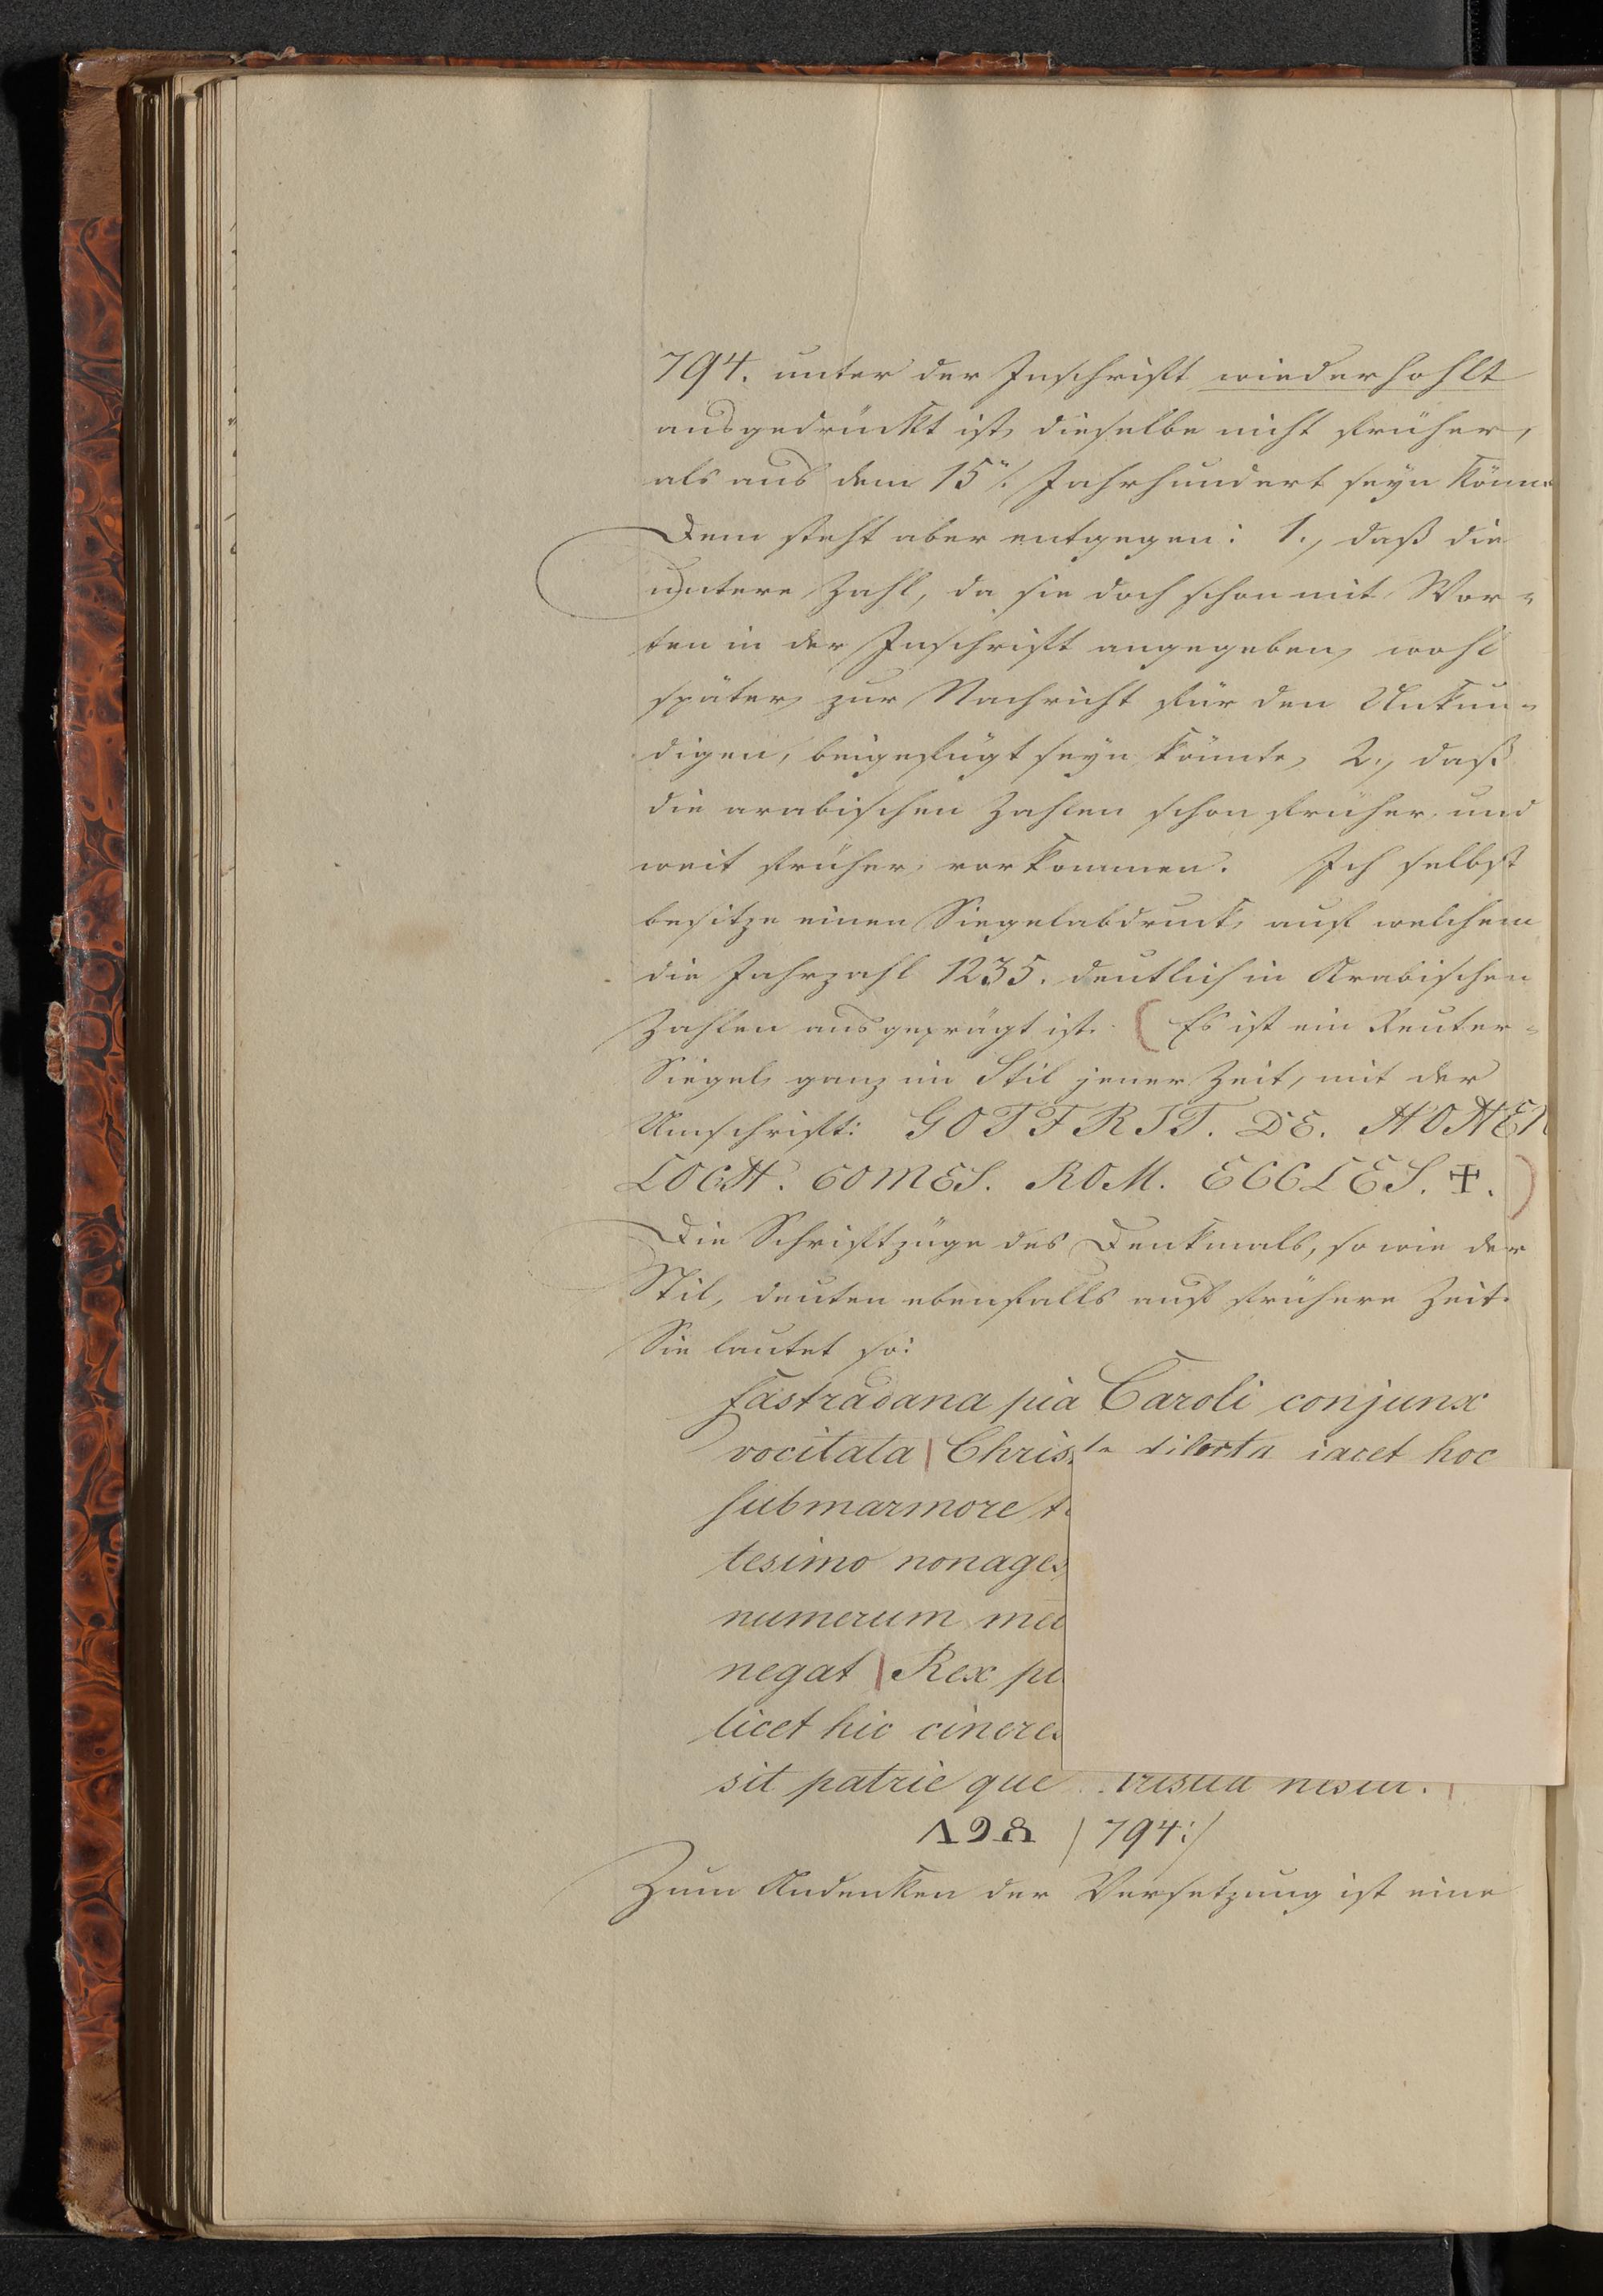 794. unter der Inschrift wiederhohlt
ausgedrückt ist, dieselbe nicht früher,
als aus dem 15n/. Jahrhundert seyn könne
Dem steht aber entgegen: 1., daß die
untere Zahl, da sie doch schon mit Wor-
ten in der Inschrift angegeben, wohl
später, zur Nachricht für den Unkun-
digen, beigefügt seyn könnte, 2., daß
die arabischen Zahlen schon früher, und
weit früher, vorkommen. Ich selbst
besitze einen Siegelabdruck, auf welchem
die Jahrzahl 1235. deutlich in Arabischen
Zahlen ausgeprägt ist. (Es ist ein Reuter-
Siegel, ganz im Stil jener Zeit, mit der
Umschrift: GOTFRIT. DE. HOHEN
LOCH. COMES. ROM. ECCLES. ✠.)
Die Schriftzüge des Denkmals, so wie der
Stil, deuten ebenfalls auf frühere Zeit.
Sie lautet so:
fastradana pia Caroli conjunx
vocitata | dilecta iacet hoc
sub marmore
tesimo
numerum
negat | Rex
licet hic
sit patrie que
794:/
Zum Andenken der Versetzung ist eine